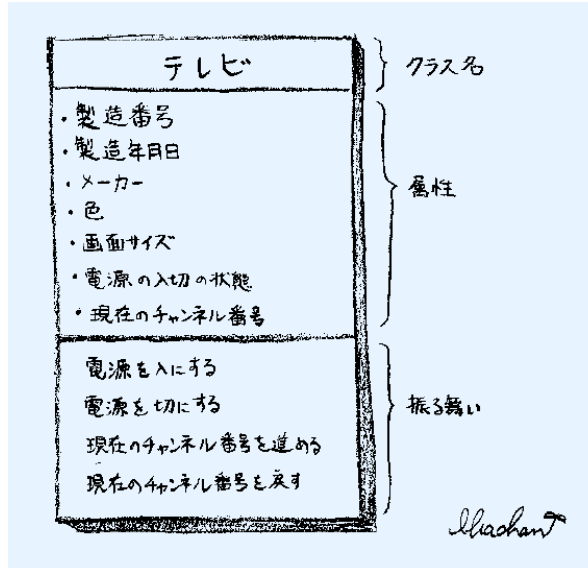 テレビ
クラス名
・製造番号
・製造年月日
・メーカー
・色
・画面サイズ
・電源の入切の状態
・現在のチャンネル番号
属性
電源を入にする
電源を切にする
現在のチャンネル番号を進める
現在のチャンネル番号を戻す
振る舞い